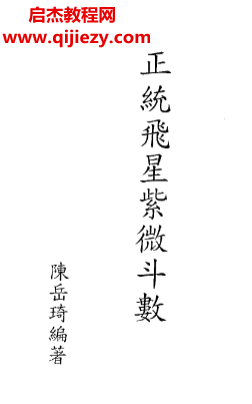 启杰教网程
www.qijiezy.com
正統飛星紫微斗數
陳岳琦編著